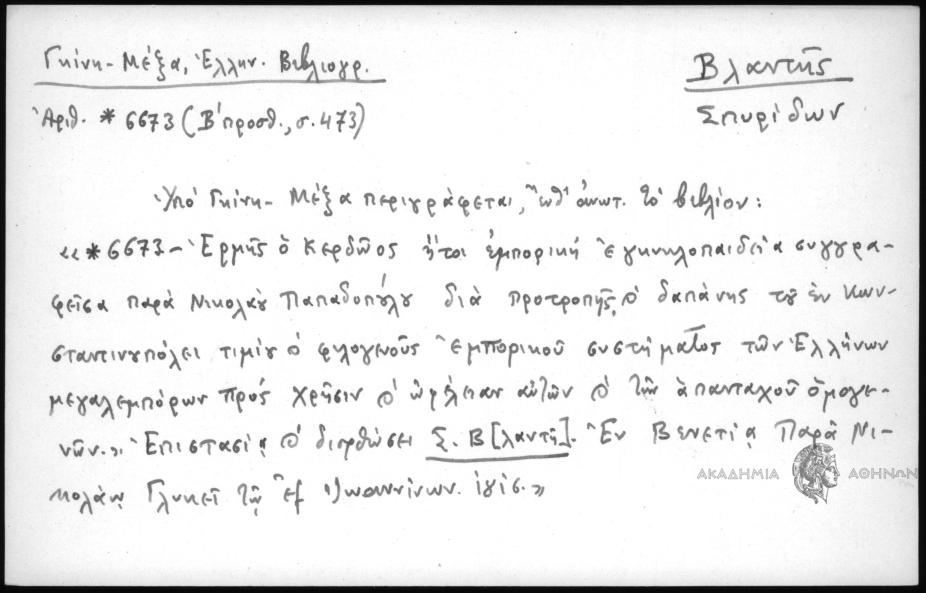 Γκίνη - Μέξα, Ἑλλην. Βιβλιογρ.
Βλαντῆς
Σπυρίδων
Ἀριθ. * 6673 (Β΄ προσθ., σ. 473)
Ὑπό Γκίνη - Μέξα περιγράφεται, ἔνθ' ἀνωτ. τό βιβλίον:
«* 6673 - Ἑρμῆς ὁ Κερδῶος ἤτοι ἐμπορική ἐγκυκλοπαιδεία συγγρα-
φεῖσα παρά Νικολάου Παπαδοπούλου διά προτροπῆς ϗ δαπάνης τοῦ ἐν Κων-
σταντινουπόλει τιμίου ϗ φιλογενοῦς ἐμπορικοῦ συστήματος τῶν Ἑλλήνων
μεγαλεμπόρων πρός χρῆσιν ϗ ὠφέλειαν αὐτῶν ϗ τῶν ἁπανταχοῦ ὁμογε-
νῶν.». Ἐπιστασίᾳ ϗ διορθώσει Σ. Β[λαντῆ]. Ἐν Βενετίᾳ Παρά Νι-
κολάῳ Γλυκεῖ τῷ ἐξ Ἰωαννίνων. ͵αωιε.»
ΑΚΑΔΗΜΙΑ ΑΘΗΝΩΝ